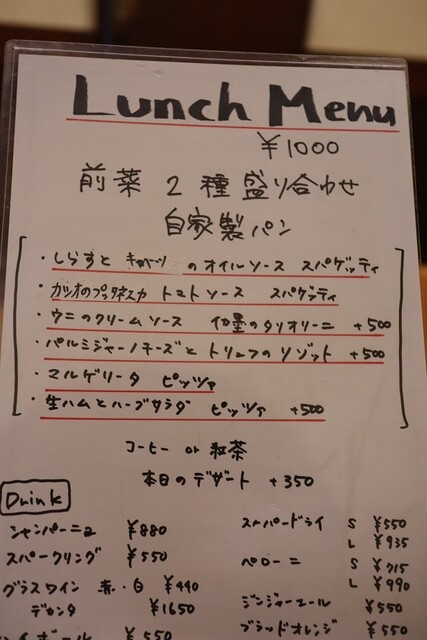 Lunch Menu
¥1000
前菜 2種盛り合わせ
自家製パン
・しらすと キャベツ のオイルソース スパゲッティ
・カツオのプッタネスカ トマトソース スパゲッティ
・ウニのクリームソース のタリオリーニ +500
・パルミジャーノチーズと トリュフのリゾット +500
・マルゲリータ ピッツァ
・生ハムとハーブサラダ ピッツァ +500
コーヒー or 紅茶
本日のデザート +350
Drink
シャンパーニュ ¥880
スパークリング ¥550
グラスワイン 赤・白 ¥440
デカンタ ¥1650
ハイボール ¥550
スーパードライ S ¥550
L ¥935
ペローニ S ¥715
L ¥990
ジンジャーエール ¥550
ブラッドオレンジ ¥550